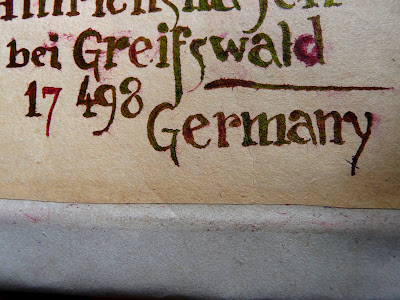 Hinrichshagen
bei Greifswald
17 498
Germany